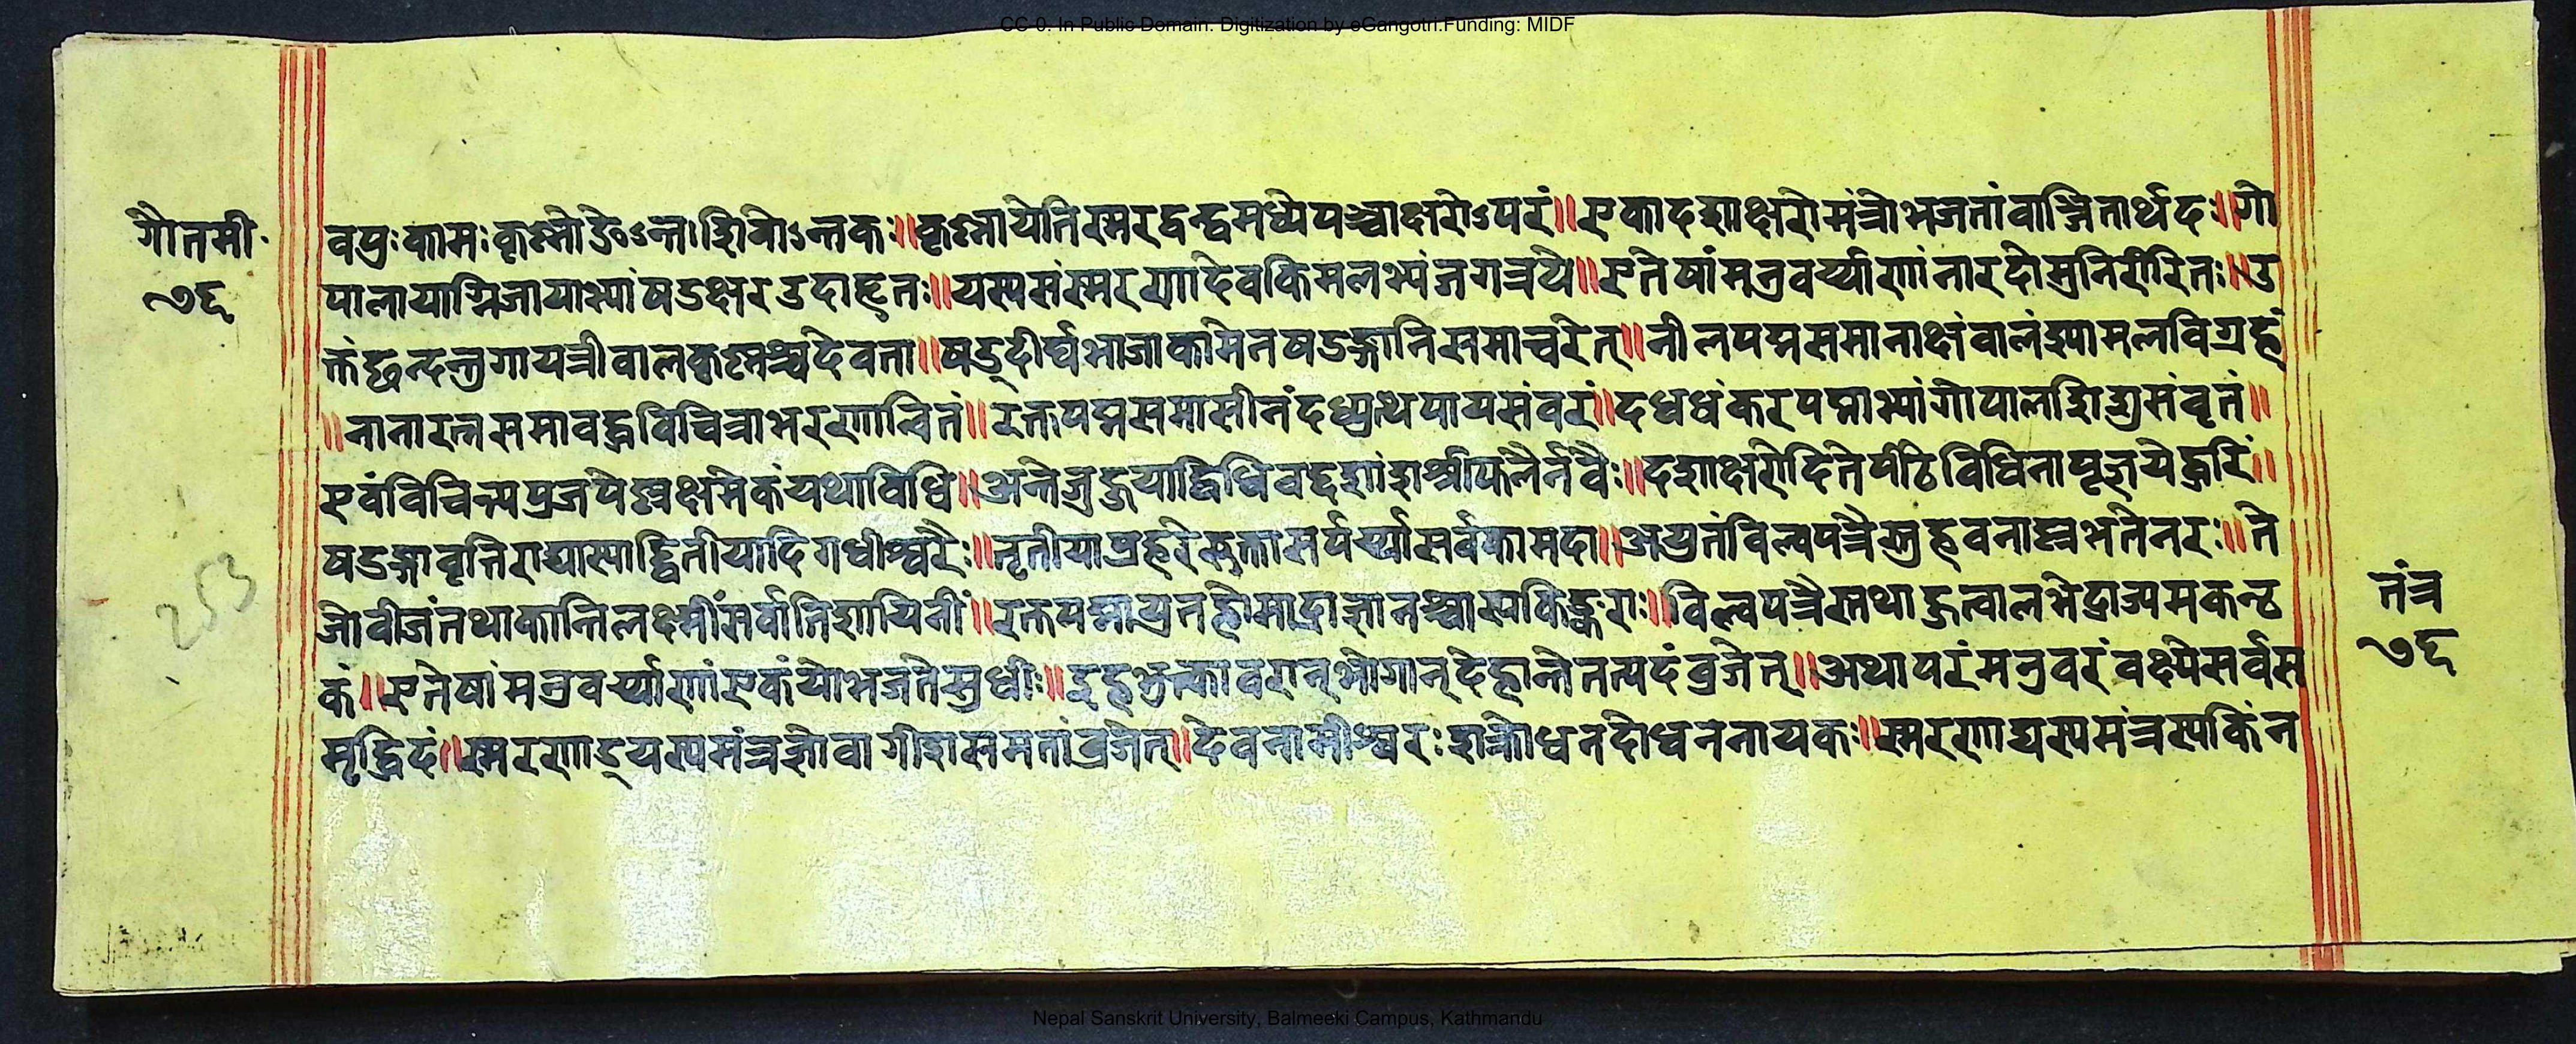 CC-0. In Public Domain. Digitization by eGangotri.Funding: MIDF
गौतमी
७६
वप्रः कामः कृष्णो ङेऽन्तः शिवोऽन्तकः॥ कृष्णायेति स्मरद्वन्द्वमध्ये पञ्चाक्षरोऽपरं॥ एकादशाक्षरो मंत्रो भजतां वाञ्छितार्थदः॥ गो
पालायाग्निजायाभ्यां षडक्षर उदाहृतः॥ यस्य संस्मरणादेव किमलभ्यं जगत्रये॥ एतेषां मन्त्रवर्य्याणां नारदो मुनिरीरितः॥ उ
क्तं छन्दन्तु गायत्री वालकृष्णश्च देवता॥ षड्दीर्घभाजा कामेन षडङ्गानि समाचरेत्॥ नीलपद्मसमानाक्षं वालं श्यामलविग्रहं
॥ नानारत्नसमावद्धविचित्राभरणान्वितं॥ रक्तपद्मसमासीनं दध्युत्थपायसंवरं॥ दधधं करपद्माभ्यां गोपालशिशुसंवृतं॥
एवं विचिन्त्य प्रजपेल्लक्षमेकं यथाविधि॥ अन्ते जुहुयाद्विधिवद्दशांश श्रीफलैर्नवैः॥ दशाक्षरोदिते पीठे विधिना पूजयेद्धरिं॥
षडङ्गावृत्तिराद्यास्याद्द्वितीयादिगधीश्वरैः॥ तृतीया प्रहरे सुक्तासपर्य्या सर्वकामदा॥ अयुतं विल्वपत्रैस्तु हवनाल्लभते नरः॥ ते
जो वीजं तथा कान्ति लक्ष्मीं सर्वातिशायिनीं॥ रक्तपद्मायुतहोमाद्राजानश्चास्य किङ्कराः॥ विल्वपत्रैस्तथा हुत्वा लभेद्राज्यमकन्ठ
कं॥ एतेषां मन्त्रवर्य्याणां एकं यो भजते सुधीः॥ इह भुक्त्वा वरान् भोगान् देहान्ते तत्पदं व्रजेत्॥ अथापरं मन्त्रवरं वक्ष्ये सर्वस
मृद्धिदं॥ स्मरणाड् यस्य मंत्रज्ञो वागीशसमतां व्रजेत्॥ देवनामीश्वरः शक्रो धनदो धननायकः॥ स्मरणाद्यस्य मंत्रस्य किं न
253
तंत्र
७६
Nepal Sanskrit University, Balmeeki Campus, Kathmandu